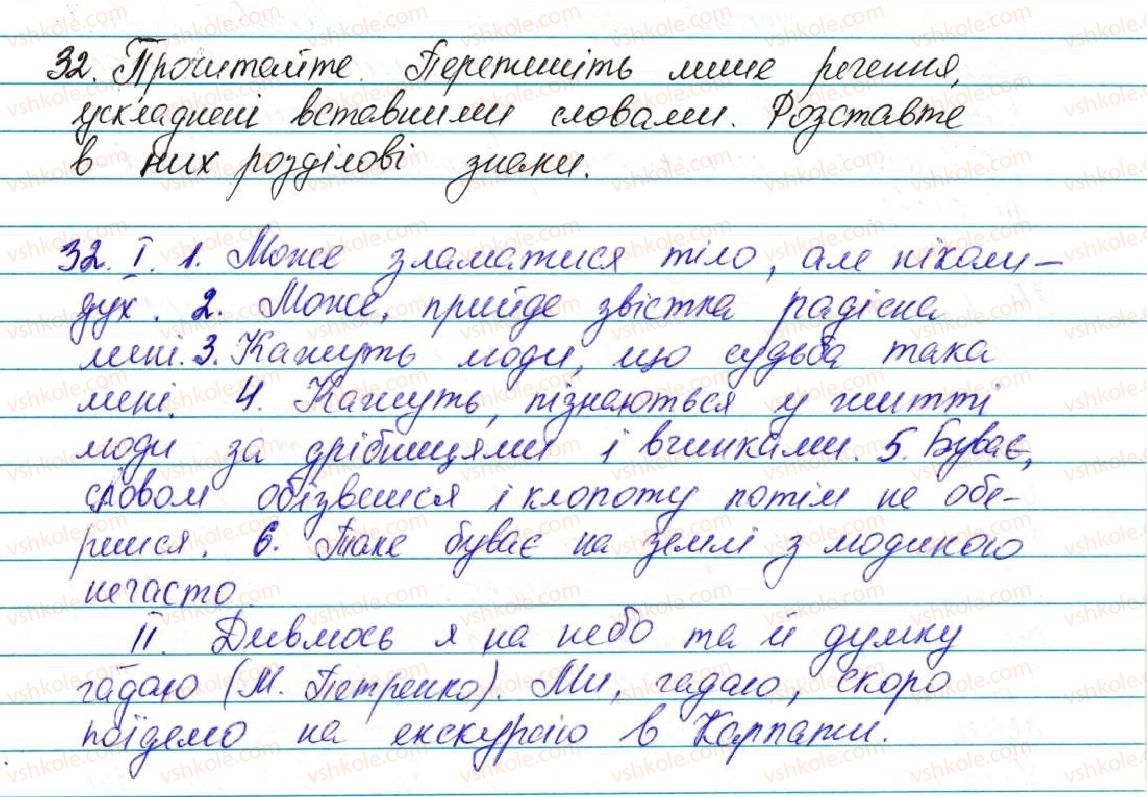 32. Прочитайте. Перепишіть лише речення,
ускладнені вставними словами. Розставте
в них розділові знаки.
32. I. 1. Може зламатися тіло, але ніколи –
дух. 2. Може, прийде звістка радісна
мені. 3. Кажуть люди, що судьба така
мені. 4. Кажуть, пізнаються у житті
люди за дрібницями і вчинками. 5. Буває,
словом обізвешся і клопоту потім не обе-
решся. 6. Таке буває на землі з людиною
нечасто.
II. Дивлюсь я на небо та й думку
гадаю (М. Петренко). Ми, гадаю, скоро
поїдемо на екскурсію в Карпати.
vshkole.com